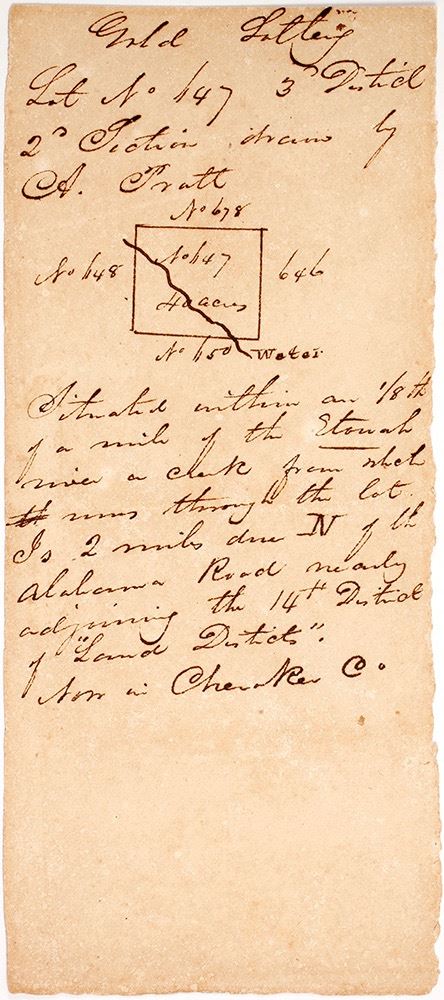 Gold Lottery
Lot No 647 3d District
2d Section drawn by
A. Pratt
No 678
No 648 No 647 646
40 acres
No 650 Water
Situated within an 1/8th
of a mile of the Etowah
river a creek from which
runs through the lot.
Is 2 miles due N of the
Alabama Road nearly
adjoining the 14th District
of "Land Districts".
Now in Cherokee Co